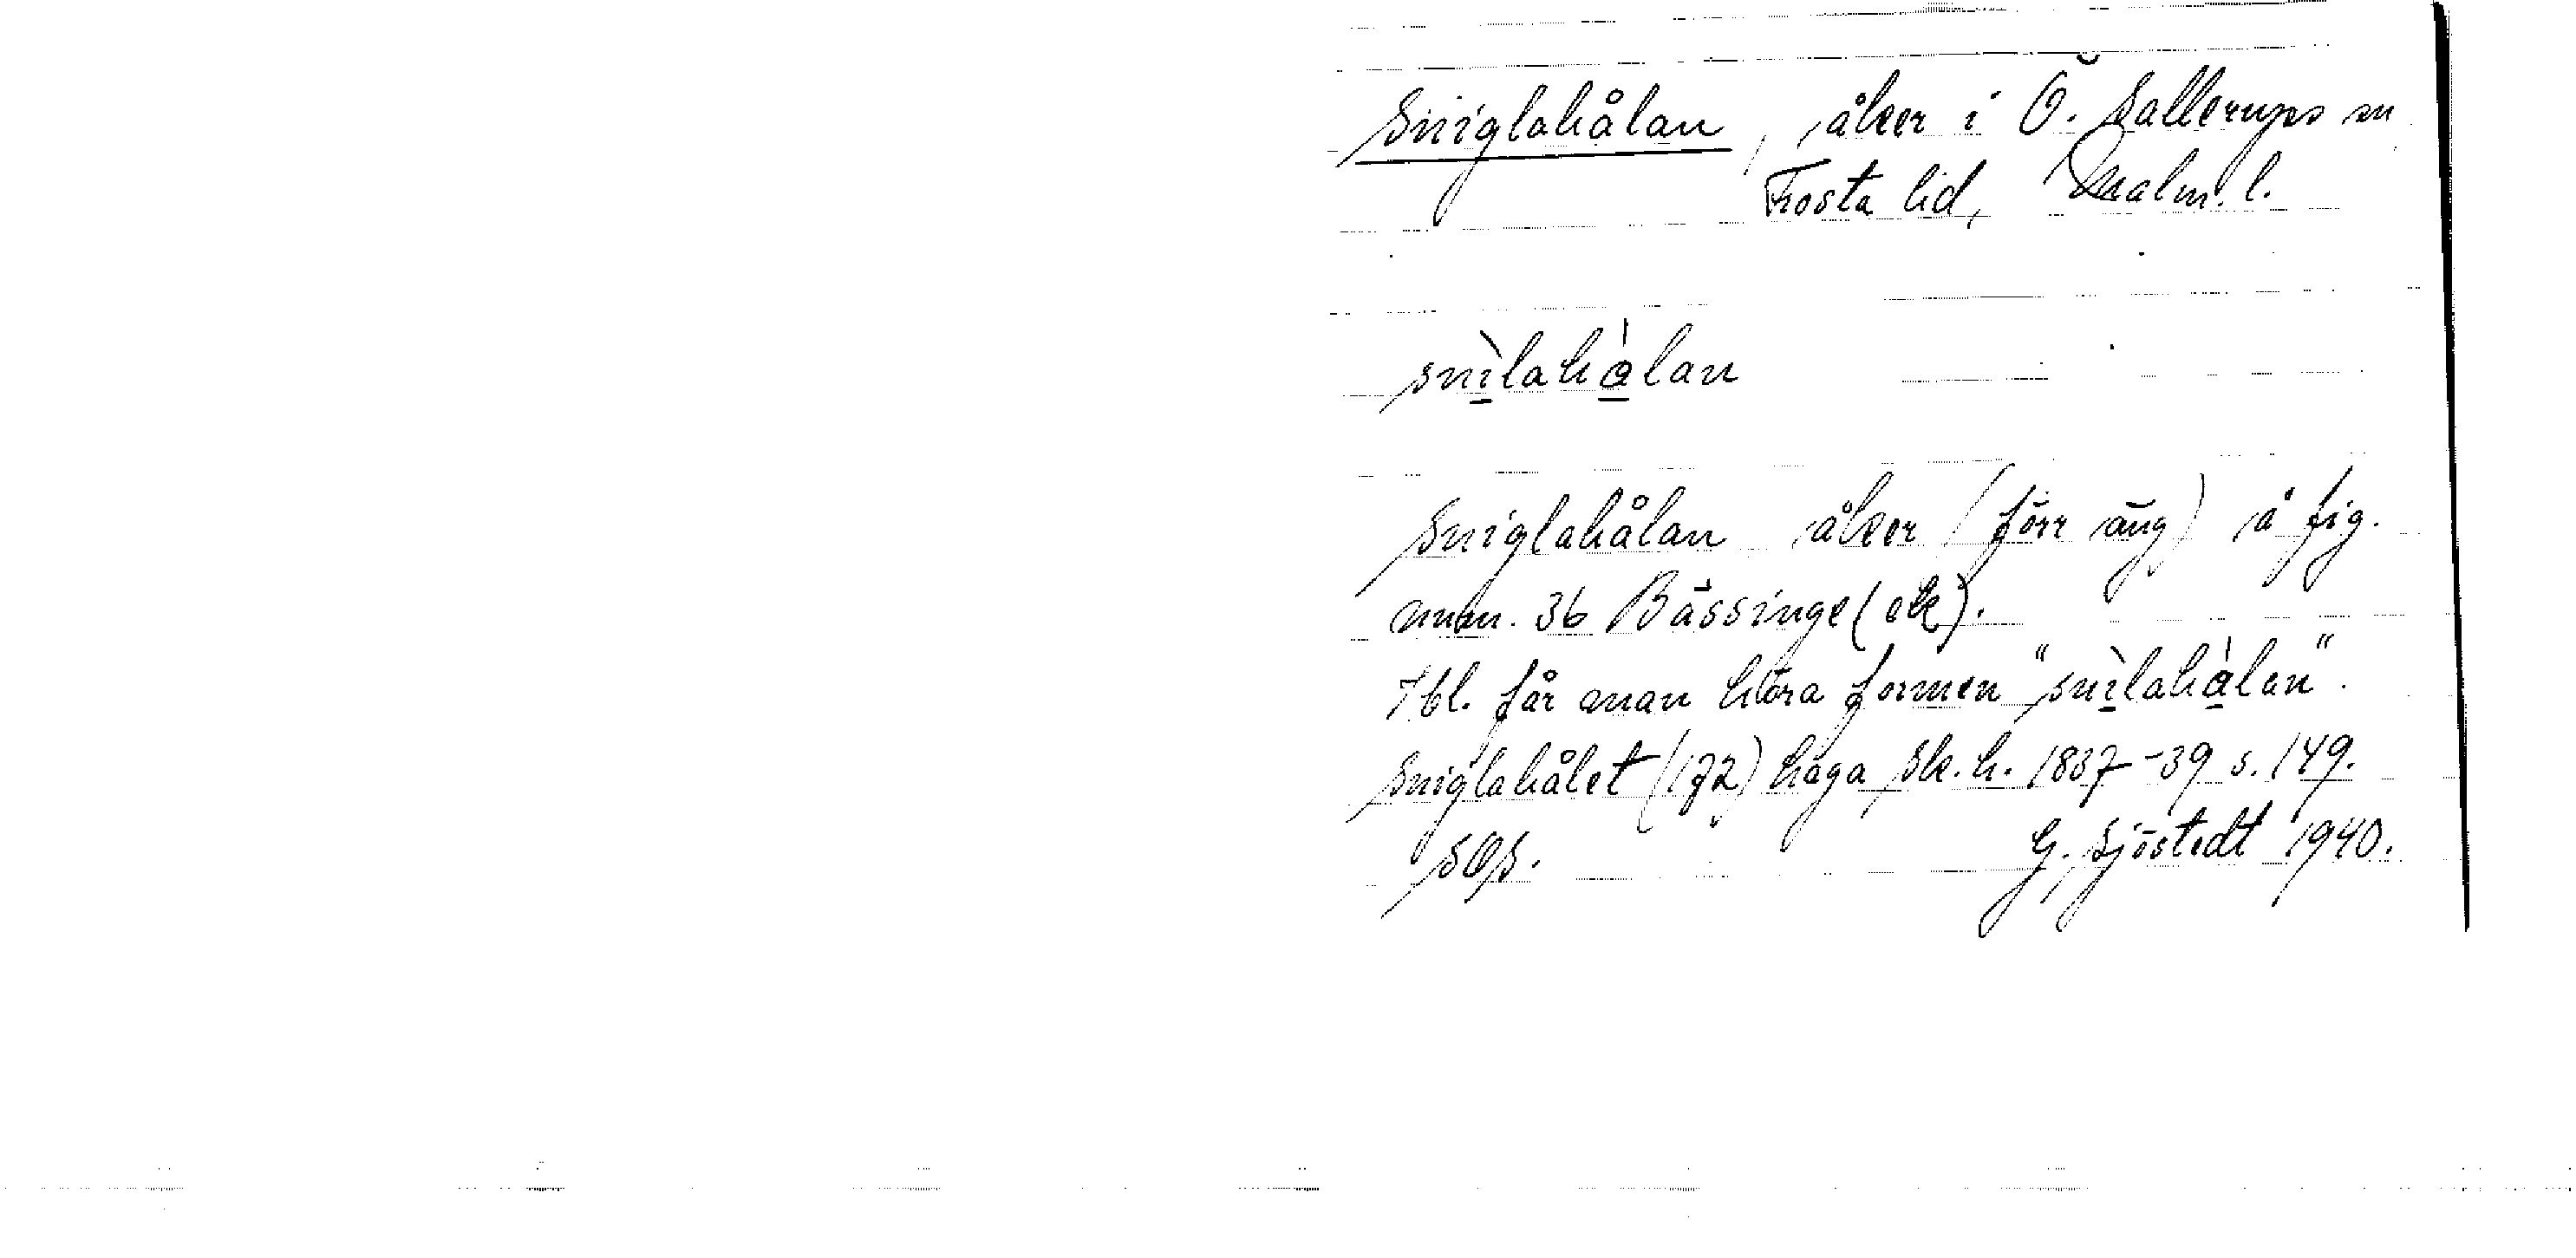 Sniglahålan, åker i Ö. Sallerups sn
Frosta hd, Malm. l.
snìlahàlan
Sniglahålan åker (förr äng) å fig.
num. 36 Bässinge (ek).
Ibl. får man höra formen "snìlahàlan".
Sniglahålet (172) haga Sk. h. 1837-39 s. 149.
SOS. G. Sjöstedt 1940.